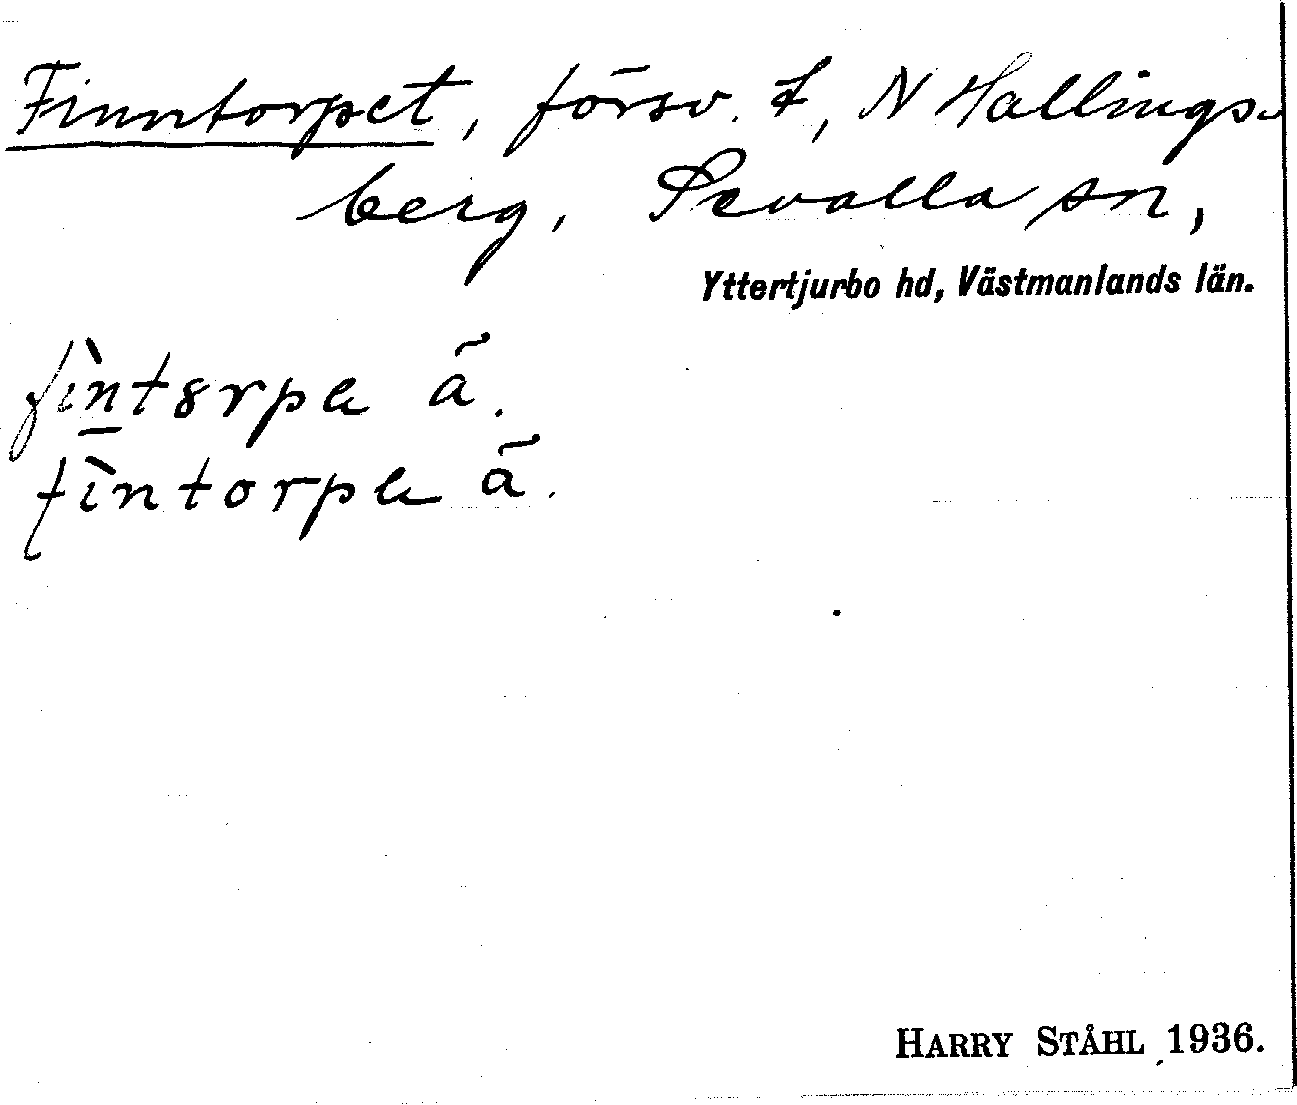 Finntorpet, försv. t, N Hallings-
berg, Sevalla sn,
Yttertjurbo hd, Västmanlands län.
fìntȣrpa ã.
fìntorpa ã.
HARRY STÅHL 1936.